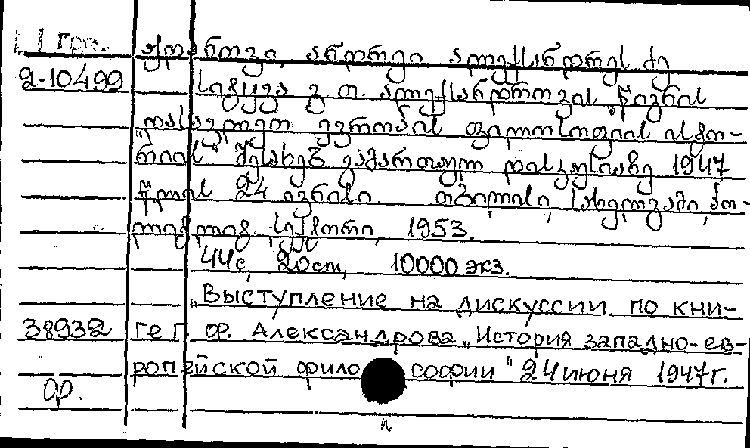 1 Гру. ჟდანოვი, ანდრეი ალექსანდრეს ძე
2-10499 სიტყვა გ. თ. ალექსანდროვის წიგნის
„დასავლეთ ევროპის ფილოსოფიის ისტო-
რიის“ შესახებ გამართულ დისკუსიაზე 1947
წლის 24 ივნისი. თბილისი, სახელგამი, პო-
ლიტლიტ. სექტორი, 1953.
44с, 20cm, 10000 экз.
„Выступление на дискуссии по кни-
38932 ге Г. Ф. Александрова „История западно-ев-
ропейской философии" 24 июня 1947г.
Ф.